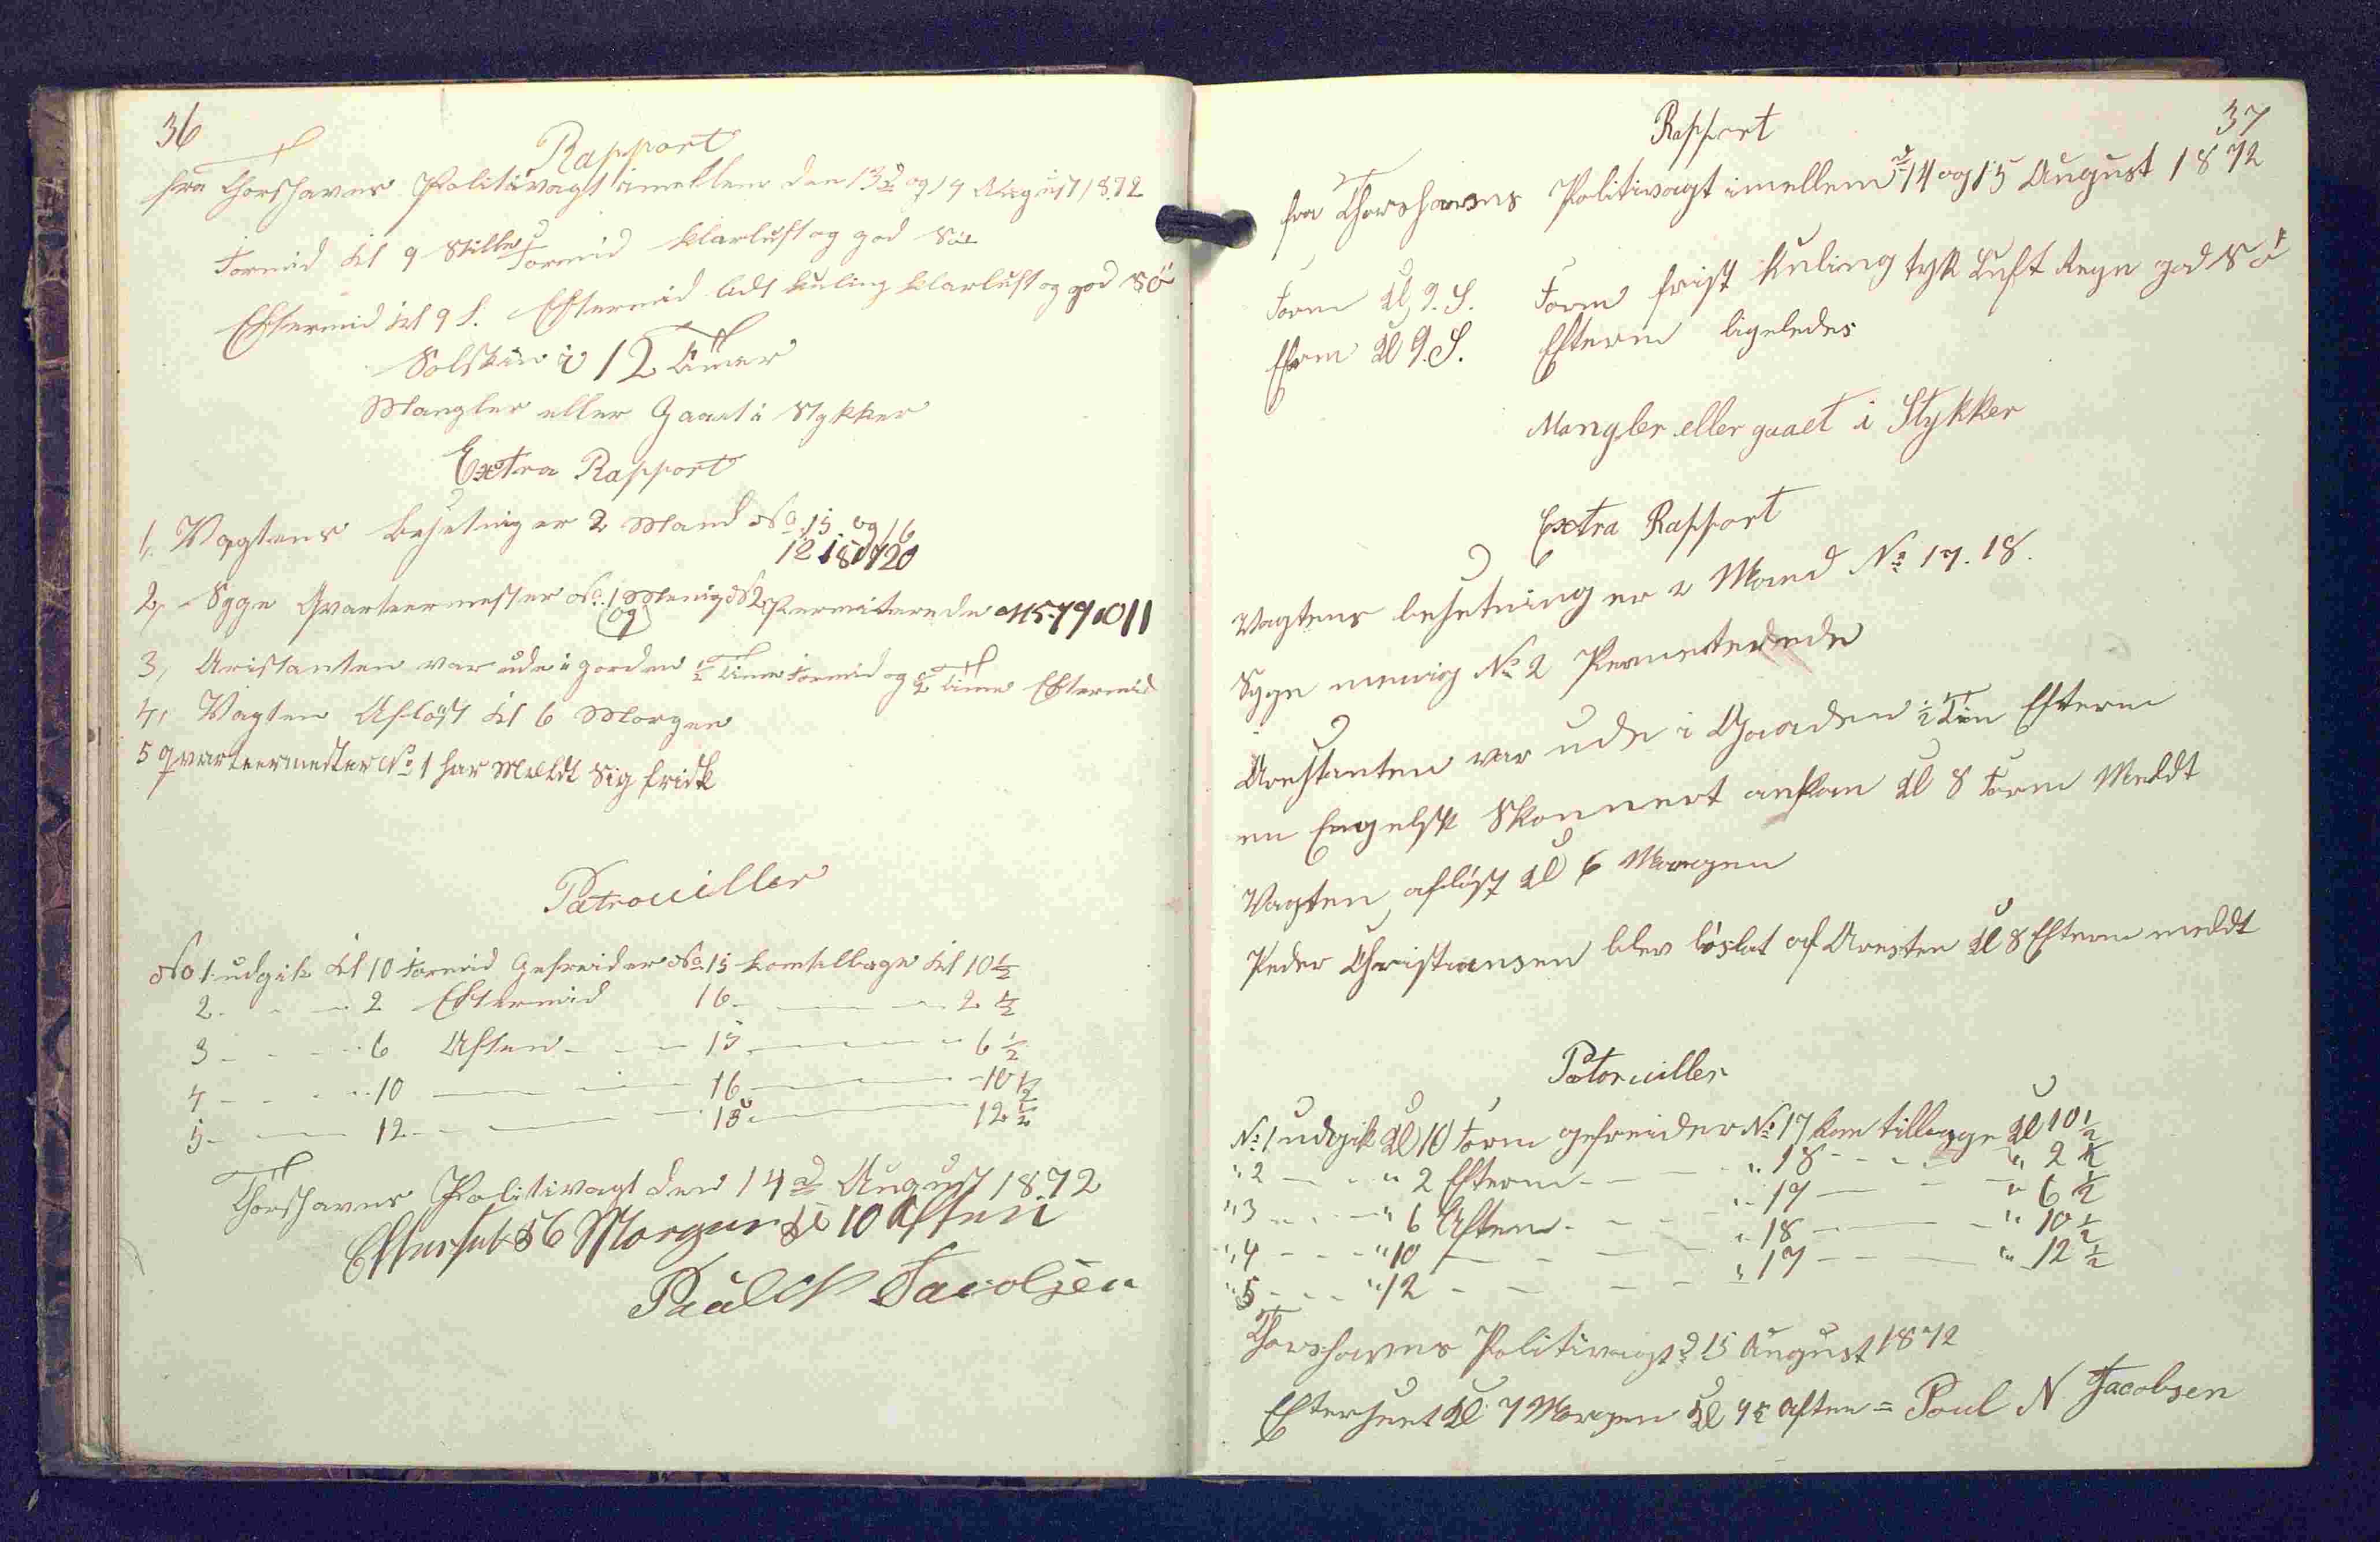 36
Rapport
fra Thorshavns Politivagt imellem den 13d og 14 August 1872
Formid Kl 9 Stille Formid klarluft og god Sö
Eftermid Kl 9 S. Eftermid lidt kuling klarluft og god Sö
Solskin i 12 Timer
Mangler eller Gaaet i Stykker
Extra Rapport
1, Vagtens besetning er 2 Mand No 15 og 16
12 18 og 20
2, Syge Qvarteermester No. 1 og Menig No 2 Permiterede 4 5 7 9 10 11
3, Aristanten var ude i gorden ½ Time Formid og ½ Time Eftermid
4, Vagten Aflöst Kl 6 Morgen
5 qvarteermester No 1 har Meldt Sig frisk
Patrouiller
No 1 udgik Kl 10 Formid Gefreider No 15 kom tilbage Kl 10½
2 - - - 2 Eftermid 16 - - - 2½
3 - - - 6 Aften - - - 15 - - - 6½
4 - - - 10 - - - 16 - - - 10½
5 - - - 12 - - - 15 - - - 12½
Thorshavns Politivagt den 14d August 1872
Efterset Morgen Kl 10 Aften
Paul N Jacobsen
37
Rapport
fra Thorshavns Politivagt imellem d 14 og 15 August 1872
Form Kl 9. S. Form frist Kuling tyk Luft Regn god Sö
Efterm Kl 9. S. Efterm ligeledes
Mangler eller gaaet i Stykker
Extra Rapport
Vagtens besetning er 2 Mand No 17. 18.
Syge menig No 2 Permeterede
Arestanten var ude i Gaarden ½ Tim Efterm
en Engelsk Skonnert ankom Kl 8 Form Meldt
Vagten aflöst Kl 6 Morgen
Peder Christiansen blev löslat af Aresten Kl 8 Efterm meldt
Patoruiller
No 1 udgik Kl 10 Form gefreider No 17 kom tilbage Kl 10½
" 2 - - - " 2 Efterm - - - " 18 - - - " 2½
" 3 - - - " 6 Aften - - - " 17 - - - " 6½
" 4 - - - " 10 - - - " 18 - - - " 10½
" 5 - - - " 12 - - - " 17 - - - " 12½
Thorshavns Politivagt d 15 August 1872
Efterseet Kl 7 Morgen Kl Aften = Poul N Jacobsen